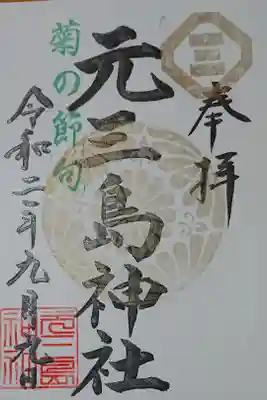 奉拝
元三島神社
菊の節句
令和二年九月九日
三
元三島神社